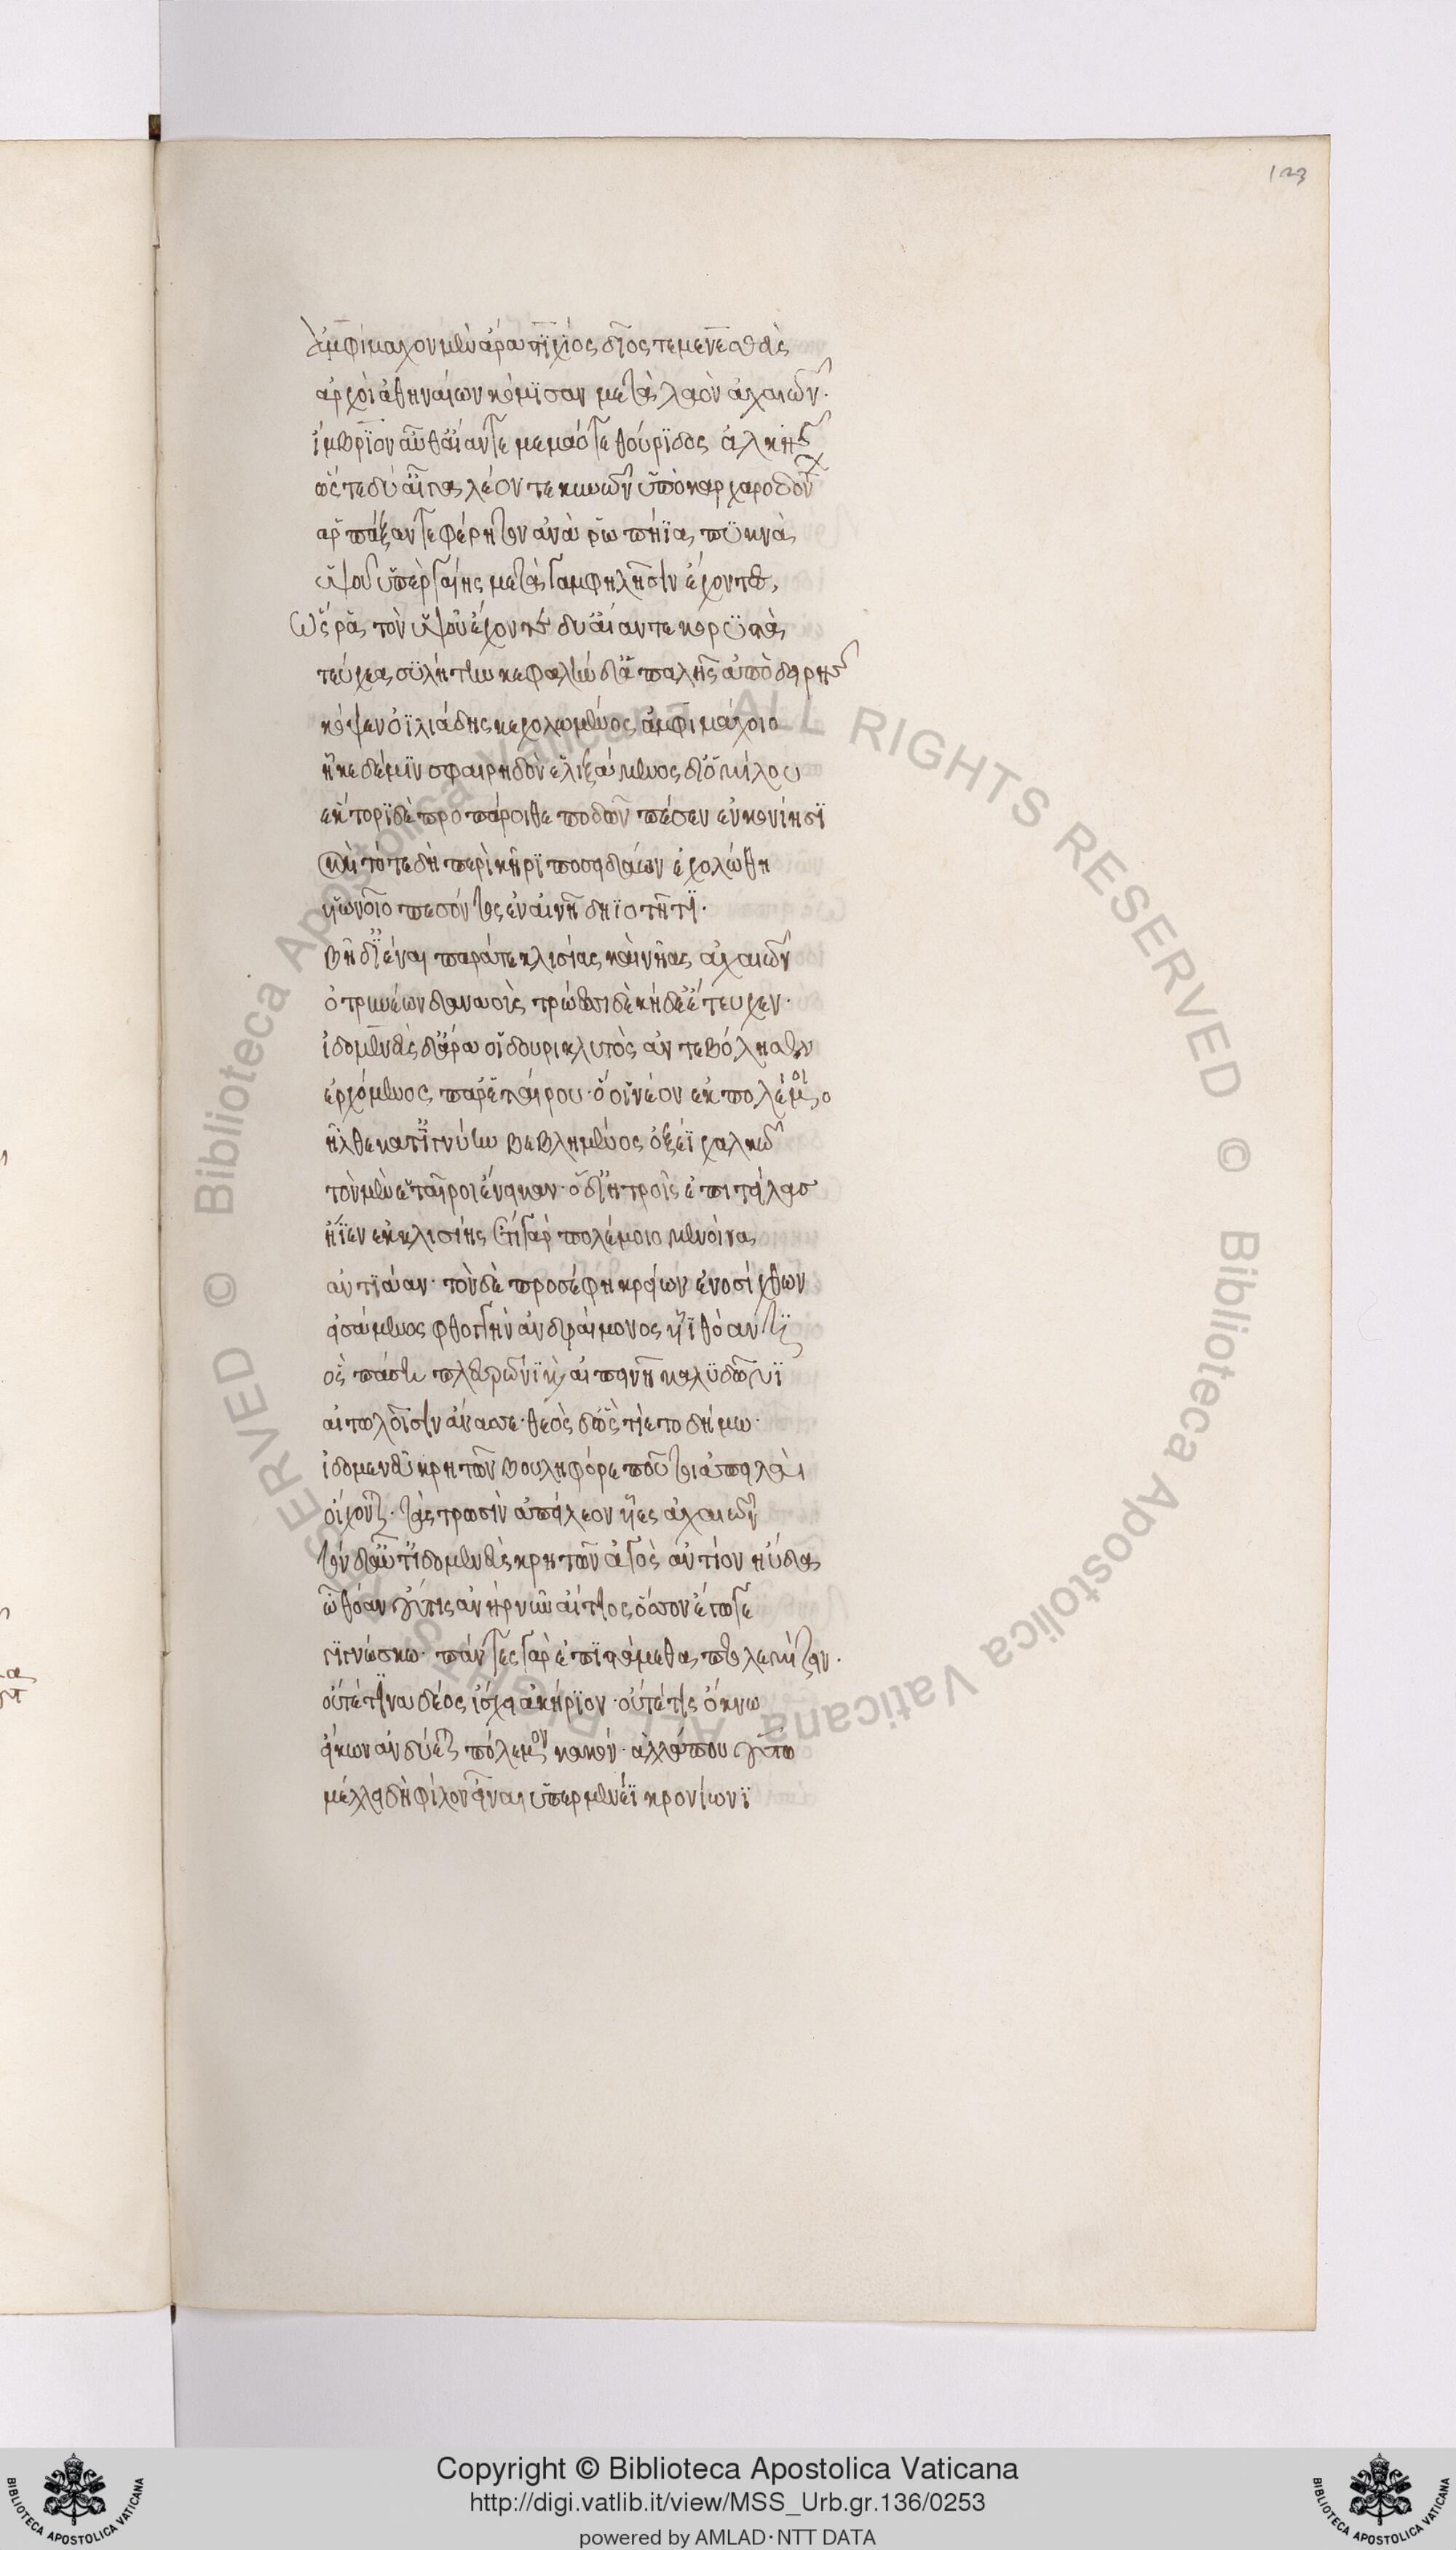 123
Ἀμφίμαχον μὲν ἄρα στιχίος δῖος τε μενεσθεὺς
ἀρχοὶ ἀθηναίων κόμισαν μετὰ λαὸν ἀχαιῶν·
ἴμβριον αὖθ' αἴαντε μεμαότε θούριδος ἀλκῆς
ὥς τε δύ' αἶγα λέοντε κυνῶν ὕπο καρχαροδόντων
ἁρπάξαντε φέρητον ἀνὰ ῥωπήϊα πυκνὰ
ὑψοῦ ὑπὲρ γαίης μετὰ γαμφηλῇσιν ἔχοντες
Ὥς ῥα τὸν ὑψοῦ ἔχοντες δύ' αἴαντε κορυστὰ
τεύχεα συλήτην κεφαλὴν δ' ἁπαλῆς ἀπὸ δειρῆς
κόψεν ὀϊλιάδης κεχολωμένος ἀμφιμάχοιο
ἧκε δέ μιν σφαιρηδὸν ἑλιξάμενος δι' ὁμίλου
ἕκτορι δὲ προπάροιθε ποδῶν πέσεν ἐν κονίησι
καὶ τότε δὴ περὶ κῆρι ποσειδάων ἐχολώθη
υἱωνοῖο πεσόντος ἐν αἰνῇ δηϊοτῆτι·
βῆ δ' ἰέναι παρά τε κλισίας καὶ νῆας ἀχαιῶν
ὀτρυνέων δαναοὺς τρώεσσι δὲ κήδε' ἔτευχεν·
ἰδομενεὺς δ' ἄρα οἱ δουρικλυτὸς ἀντεβόλησεν
ἐρχόμενος παρ' ἑταίρου· ὅ οἱ νέον ἐκ πολέμοιο
ἦλθε κατ' ἰγνύην βεβλημένος ὀξέϊ χαλκῶ
τὸν μὲν ἑταῖροι ἔνεικαν· ὁ δ' ἰητροῖς ἐπιτείλας
ἤϊεν ἐκ κλισίης ἔτι γὰρ πολέμοιο μενοίνα
ἀντιάαν· τὸν δὲ προσέφη κρείων ἐνοσίχθων
εἰσάμενος φθογγὴν ἀνδραίμονος υἷϊ θόαντι
ὃς πάση πλευρῶνι καὶ αἰπεινῇ καλυδῶνι
αἰτωλοῖσιν ἄνασσε· θεὸς δ' ὣς τίετο δήμω·
ἰδομενεῦ κρητῶν βουληφόρε ποῦ τοι ἀπειλαὶ
οἴχονται· τὰς τρωσὶν ἀπείλεον υἷες ἀχαιῶν
τὸν δ' αὖτ' ἰδομενεὺς κρητῶν ἀγὸς ἀντίον ηὔδα
ὦ θόαν οὔτις ἀνὴρ νῦν αἴτιος ὅσσον ἔγωγε
γιγνώσκω· πάντες γὰρ ἐπιστάμεθα πτολεμίζειν·
οὔτέ τινα δέος ἴσχει ἀκήριον· οὔτέ τις ὄκνω
εἴκων ἀνδύεται πόλεμον κακόν· ἀλλά που οὕτω
μέλλει δὴ φίλον εἶναι ὑπερμενέϊ κρονίωνι
© Biblioteca Apostolica Vaticana ALL RIGHTS RESERVED © Biblioteca Apostolica Vaticana ALL RIGHTS RESERVED
Copyright © Biblioteca Apostolica Vaticana
http://digi.vatlib.it/view/MSS_Urb.gr.136/0253
powered by AMLAD·NTT DATA
BIBLIOTECA APOSTOLICA VATICANA
BIBLIOTECA APOSTOLICA VATICANA